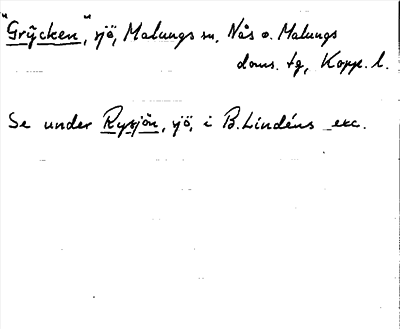 "Grÿcken", sjö, Malungs sn. Nås o. Malungs
doms. tg, Kopp. l.
Se under Rysjön, sjö, i B. Lindéns exc.